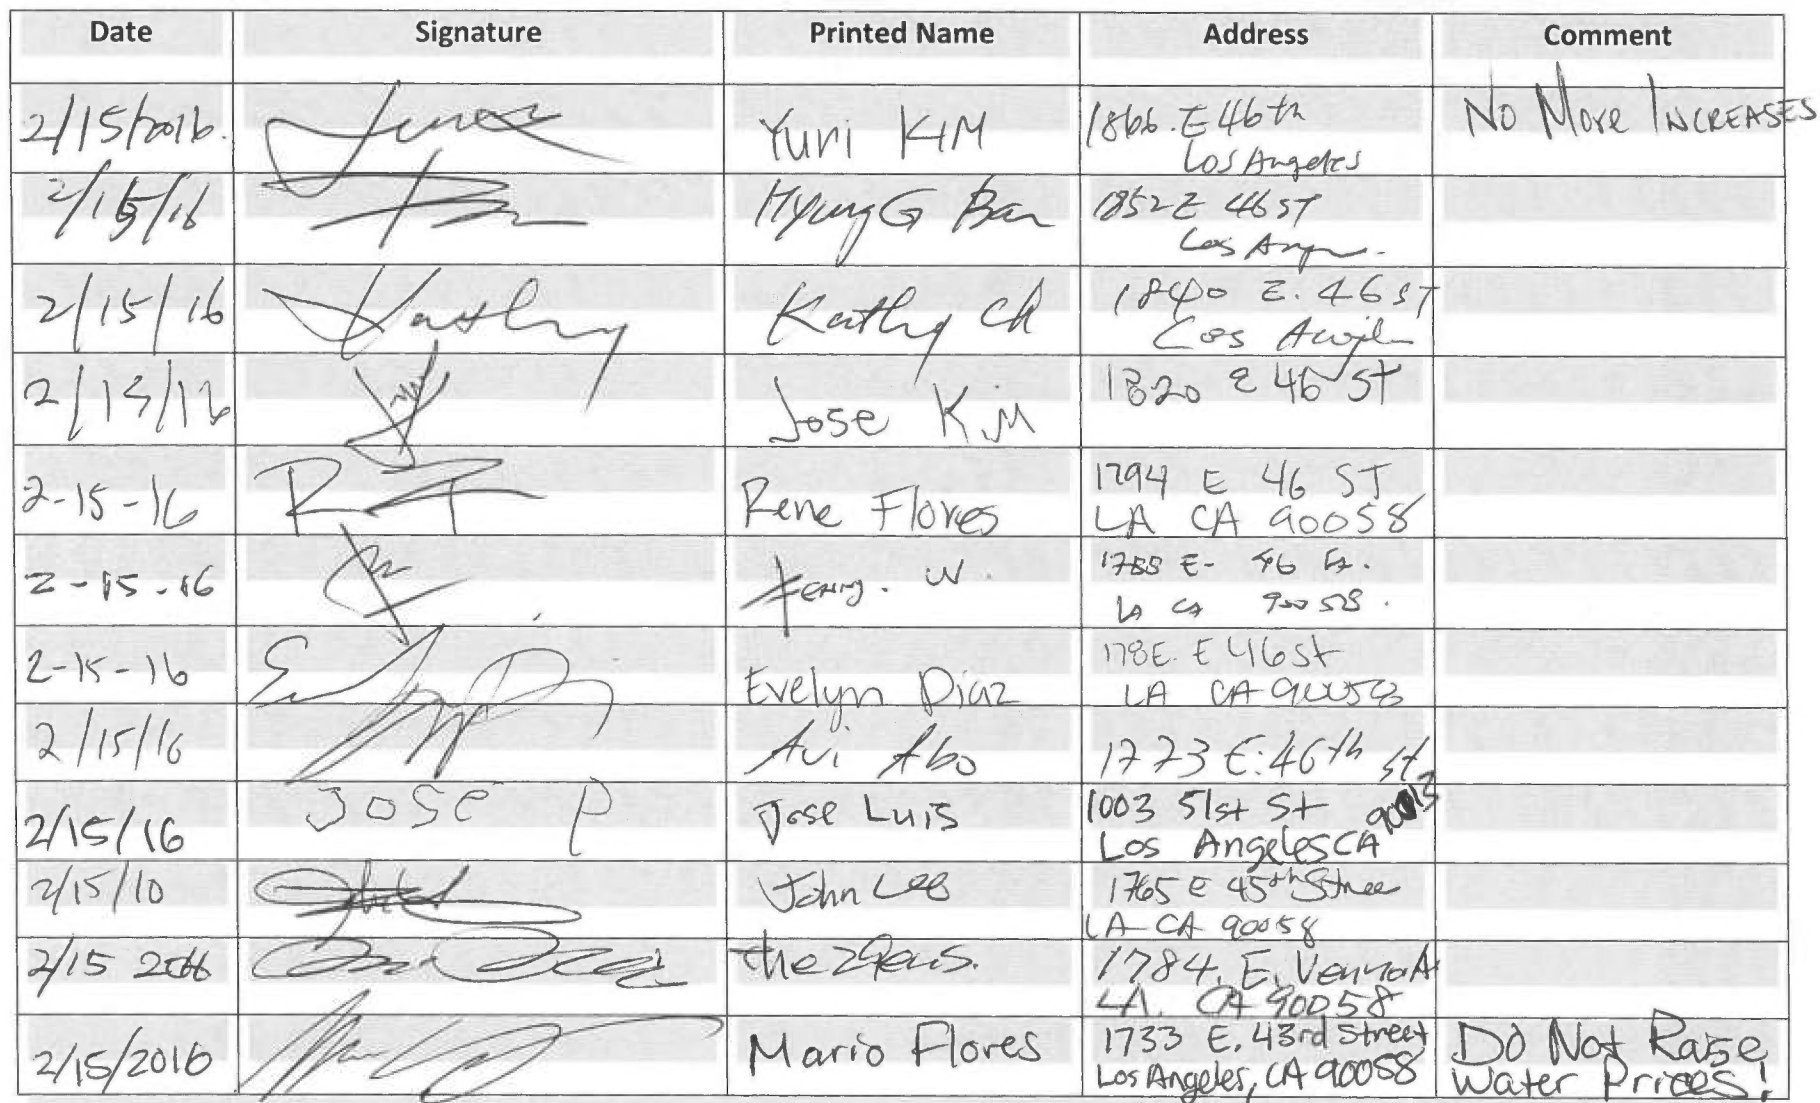 Date Signature Printed Name Address Comment
2/15/2016. Yuri KIM 1866. E 46th No More INCREASES
Los Angeles
2/15/16 Hyung G Ban 1852 E 46 ST
Los
2/15/16 Kathy Kathy Ch 1840 E. 46 ST
Los
2/15/16 Jose Kim 1820 E 46 St
2-15-16 Rene Flores 1794 E 46 ST
LA CA 90058
2-15-16 W. 1788 E- 46
LA CA 90058.
2-15-16 Evelyn Diaz E 46 St
LA CA 90058
2/15/16 Avi Abo 1773 E. 46th St
2/15/16 JOSE P Jose Luis 1003 51st St
Los Angeles CA
2/15/10 John Lee 1765 E 45th Stree
LA CA 90058
2/15 1784. E.
LA. CA 90058
2/15/2016 Mario Flores 1733 E. 43rd Street Do Not Raise
Los Angeles, CA 90058 Water Prices!